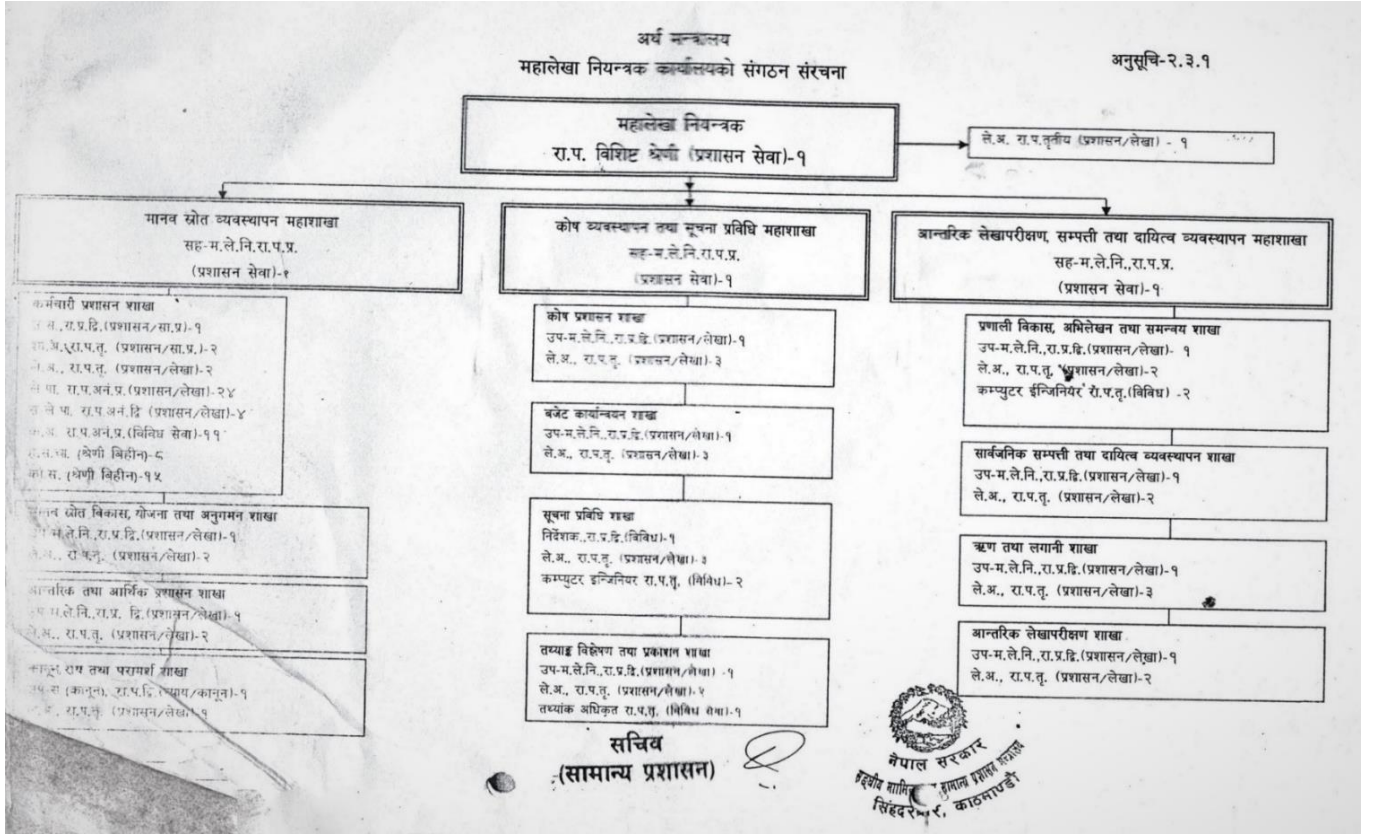 अर्थ मन्त्रालय
महालेखा नियन्त्रक कार्यालयको संगठन संरचना
अनुसूचि-२.३.१
महालेखा नियन्त्रक
रा.प. विशिष्ट श्रेणी (प्रशासन सेवा)-१
ले.अ. रा.प.तृतीय (प्रशासन/लेखा) - १
मानव स्रोत व्यवस्थापन महाशाखा
सह-म.ले.नि.रा.प.प्र.
(प्रशासन सेवा)-१
कर्मचारी प्रशासन शाखा
रा.प्र.द्वि.(प्रशासन/सा.प्र)-१
रा.प.तृ. (प्रशासन/सा.प्र.)-२
ले.अ., रा.प.तृ. (प्रशासन/लेखा)-२
ले.पा. रा.प.अनं.प्र.(प्रशासन/लेखा)-२४
स.ले.पा. रा.प.अनं.द्वि (प्रशासन/लेखा)-४
रा.प.अनं.प्र.(विविध सेवा)-११
(श्रेणी बिहीन)-८
का.स. (श्रेणी बिहीन)-१५
मानव स्रोत विकास, योजना तथा अनुगमन शाखा
उप-म.ले.नि.,रा.प्र.द्वि.(प्रशासन/लेखा)-१
ले.अ., रा.प.तृ. (प्रशासन/लेखा)-२
आन्तरिक तथा आर्थिक प्रशासन शाखा
उप-म.ले.नि.,रा.प्र. द्वि.(प्रशासन/लेखा)-१
ले.अ., रा.प.तृ. (प्रशासन/लेखा)-२
कानून राय तथा परामर्श शाखा
(कानून), रा.प.द्वि.(न्याय/कानून)-१
रा.प.तृ. (प्रशासन/लेखा)-१
कोष व्यवस्थापन तथा सूचना प्रविधि महाशाखा
सह-म.ले.नि.रा.प.प्र.
(प्रशासन सेवा)-१
कोष प्रशासन शाखा
उप-म.ले.नि.,रा.प्र.द्वि.(प्रशासन/लेखा)-१
ले.अ., रा.प.तृ. (प्रशासन/लेखा)-३
बजेट कार्यान्वयन शाखा
उप-म.ले.नि.,रा.प्र.द्वि.(प्रशासन/लेखा)-१
ले.अ., रा.प.तृ. (प्रशासन/लेखा)-३
सूचना प्रविधि शाखा
निर्देशक.,रा.प्र.द्वि.(विविध)-१
ले.अ., रा.प.तृ. (प्रशासन/लेखा)-३
कम्प्युटर इन्जिनियर रा.प.तृ. (विविध)- २
तथ्याङ्क विश्लेषण तथा प्रकाशन शाखा
उप-म.ले.नि.,रा.प्र.द्वि.(प्रशासन/लेखा) -१
ले.अ., रा.प.तृ. (प्रशासन/लेखा)-२
तथ्यांक अधिकृत रा.प.तृ. (विविध सेवा)-१
आन्तरिक लेखापरीक्षण, सम्पत्ती तथा दायित्व व्यवस्थापन महाशाखा
सह-म.ले.नि.,रा.प.प्र.
(प्रशासन सेवा)-१
प्रणाली विकास, अभिलेखन तथा समन्वय शाखा
उप-म.ले.नि.,रा.प्र.द्वि.(प्रशासन/लेखा)- १
ले.अ., रा.प.तृ. (प्रशासन/लेखा)-२
कम्प्युटर ईन्जिनियर रा.प.तृ.(विविध) -२
सार्वजनिक सम्पत्ती तथा दायित्व व्यवस्थापन शाखा
उप-म.ले.नि.,रा.प्र.द्वि.(प्रशासन/लेखा)-१
ले.अ., रा.प.तृ. (प्रशासन/लेखा)-२
ऋण तथा लगानी शाखा
उप-म.ले.नि.,रा.प्र.द्वि.(प्रशासन/लेखा)-१
ले.अ., रा.प.तृ. (प्रशासन/लेखा)-३
आन्तरिक लेखापरीक्षण शाखा
उप-म.ले.नि.,रा.प्र.द्वि.(प्रशासन/लेखा)-१
ले.अ., रा.प.तृ. (प्रशासन/लेखा)-२
सचिव
(सामान्य प्रशासन)
नेपाल सरकार
सामान्य प्रशासन मन्त्रालय
काठमाण्डौ